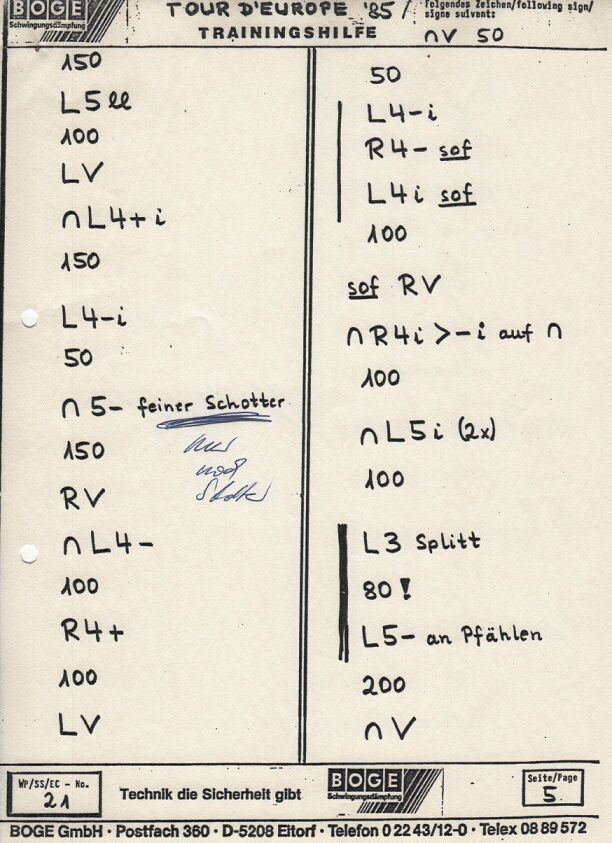 BOGE
Schwingungsdämpfung
TOUR D'EUROPE '85/
TRAININGSHILFE
Folgendes Zeichen/following sign/
signe suivant:
∩V 50
150
L5 ll
100
LV
∩L4+i
150
L4-i
50
∩ 5- feiner Schotter
150
RV
∩L4-
100
R4+
100
LV
50
L4-i
R4- sof
L4i sof
100
sof RV
∩R4i >-i auf ∩
100
∩L5i (2x)
100
L3 Splitt
80!
L5- an Pfählen
200
∩V
WP/SS/EC - No.
21
Technik die Sicherheit gibt
BOGE
Schwingungsdämpfung
Seite/Page
5
BOGE GmbH · Postfach 360 · D-5208 Eitorf · Telefon 0 22 43/12-0 · Telex 08 89 572